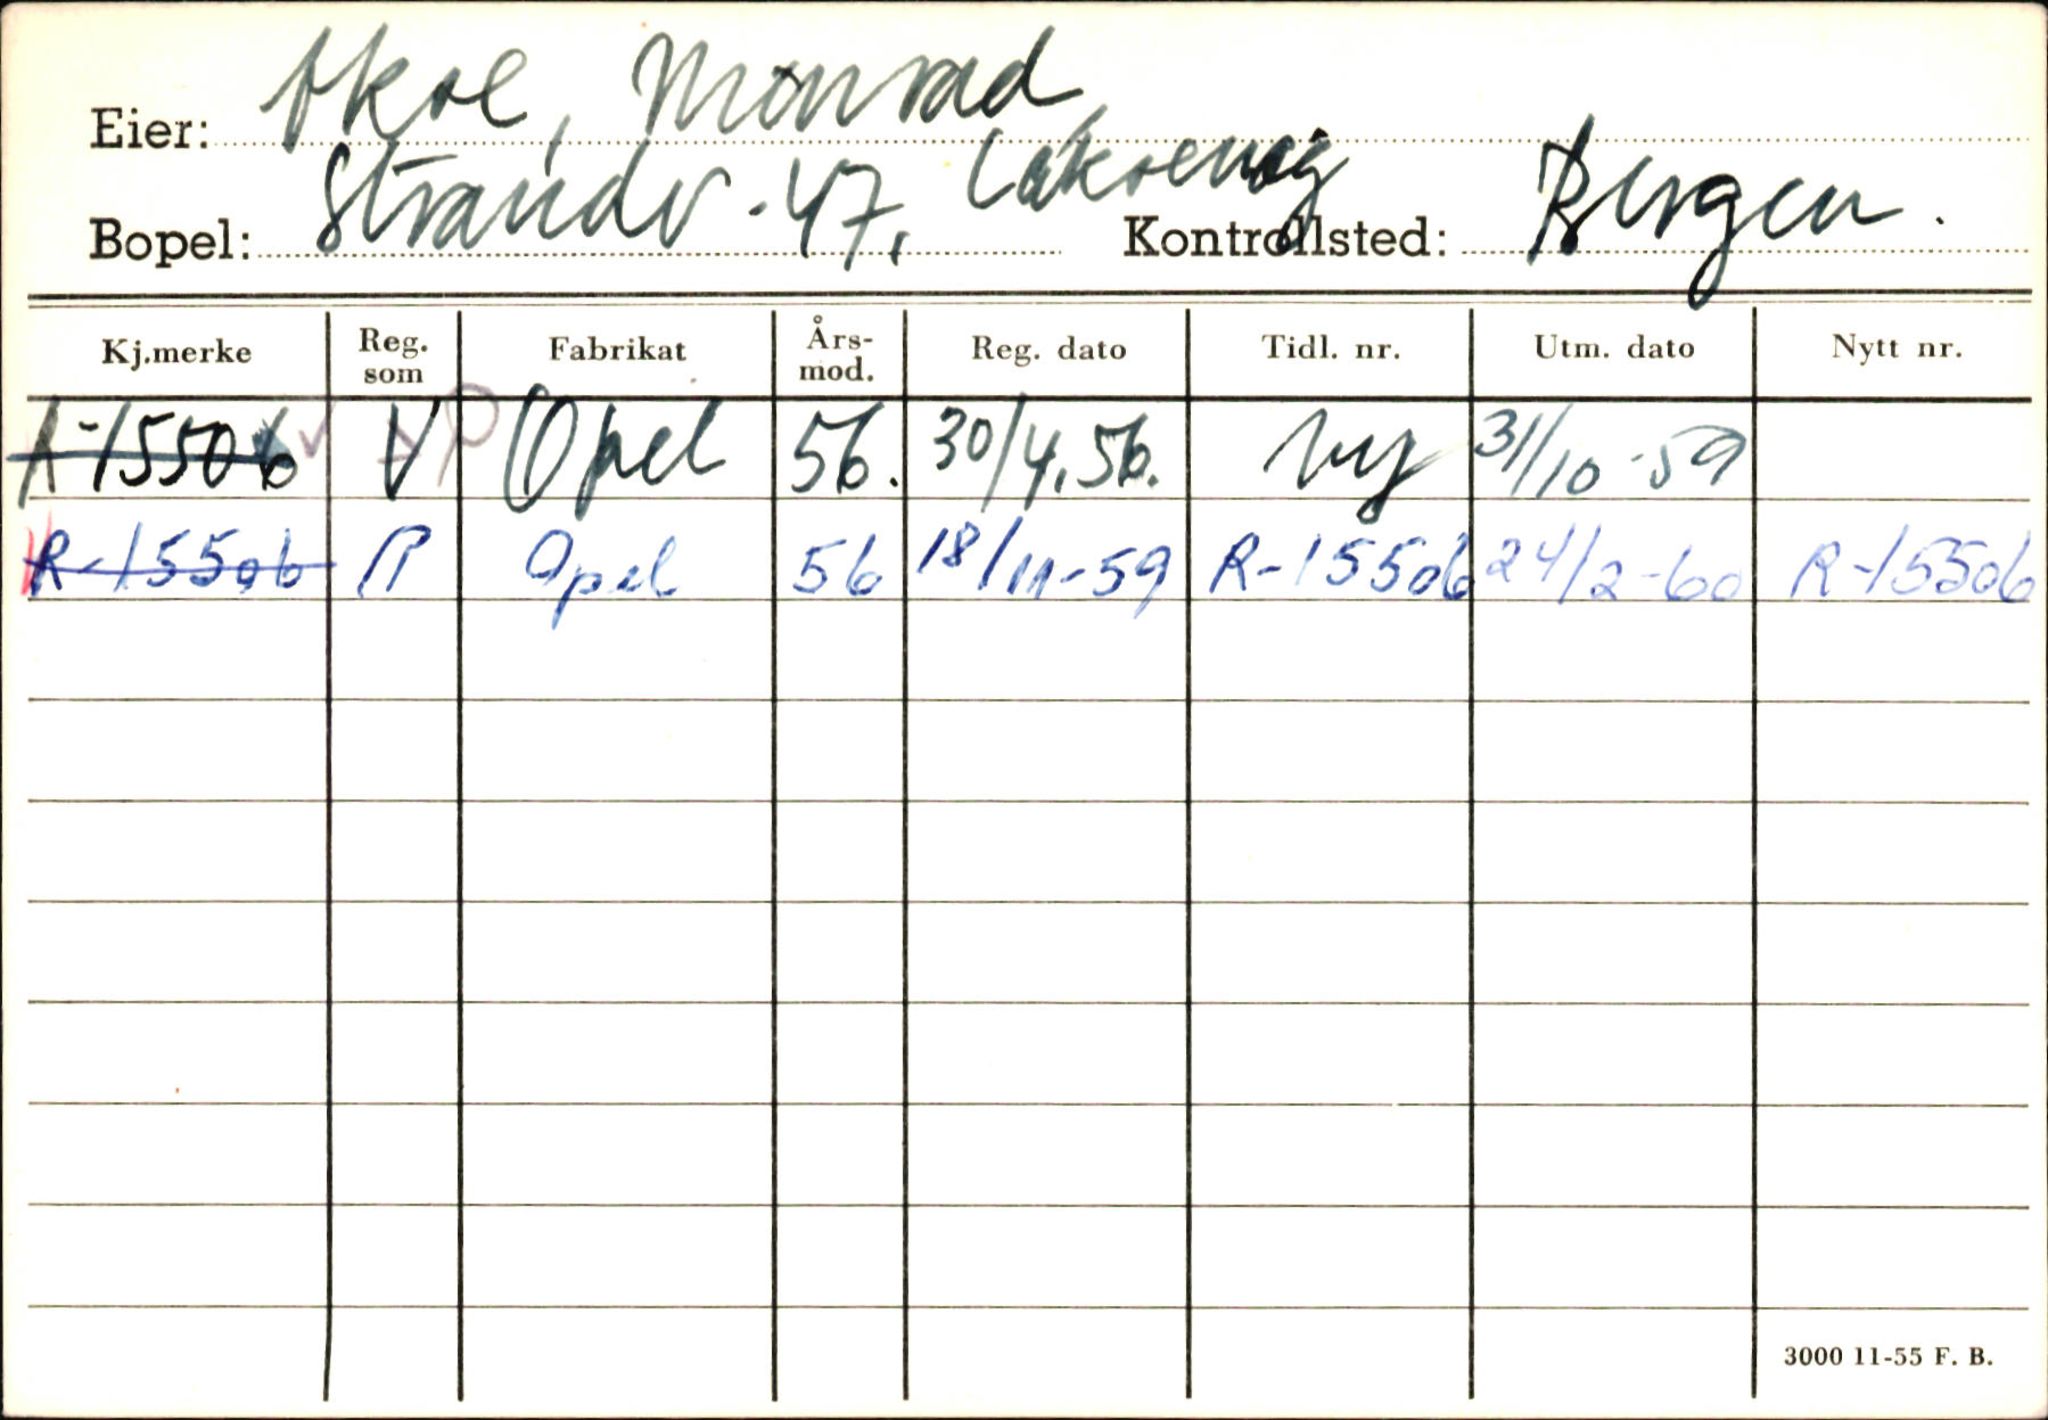 Eier: Økse, Monrad
Bopel: Strandv. 47, Laksevåg Kontrollsted: Bergen.
Kj.merke Reg. som Fabrikat Års-mod. Reg. dato Tidl. nr. Utm. dato Nytt nr.
R-15506 V Opel 56. 30/4.56. Ny 31/10-59
R-15506 P Opel 56 18/11-59 R-15506 24/2-60 R-15506
3000 11-55 F. B.